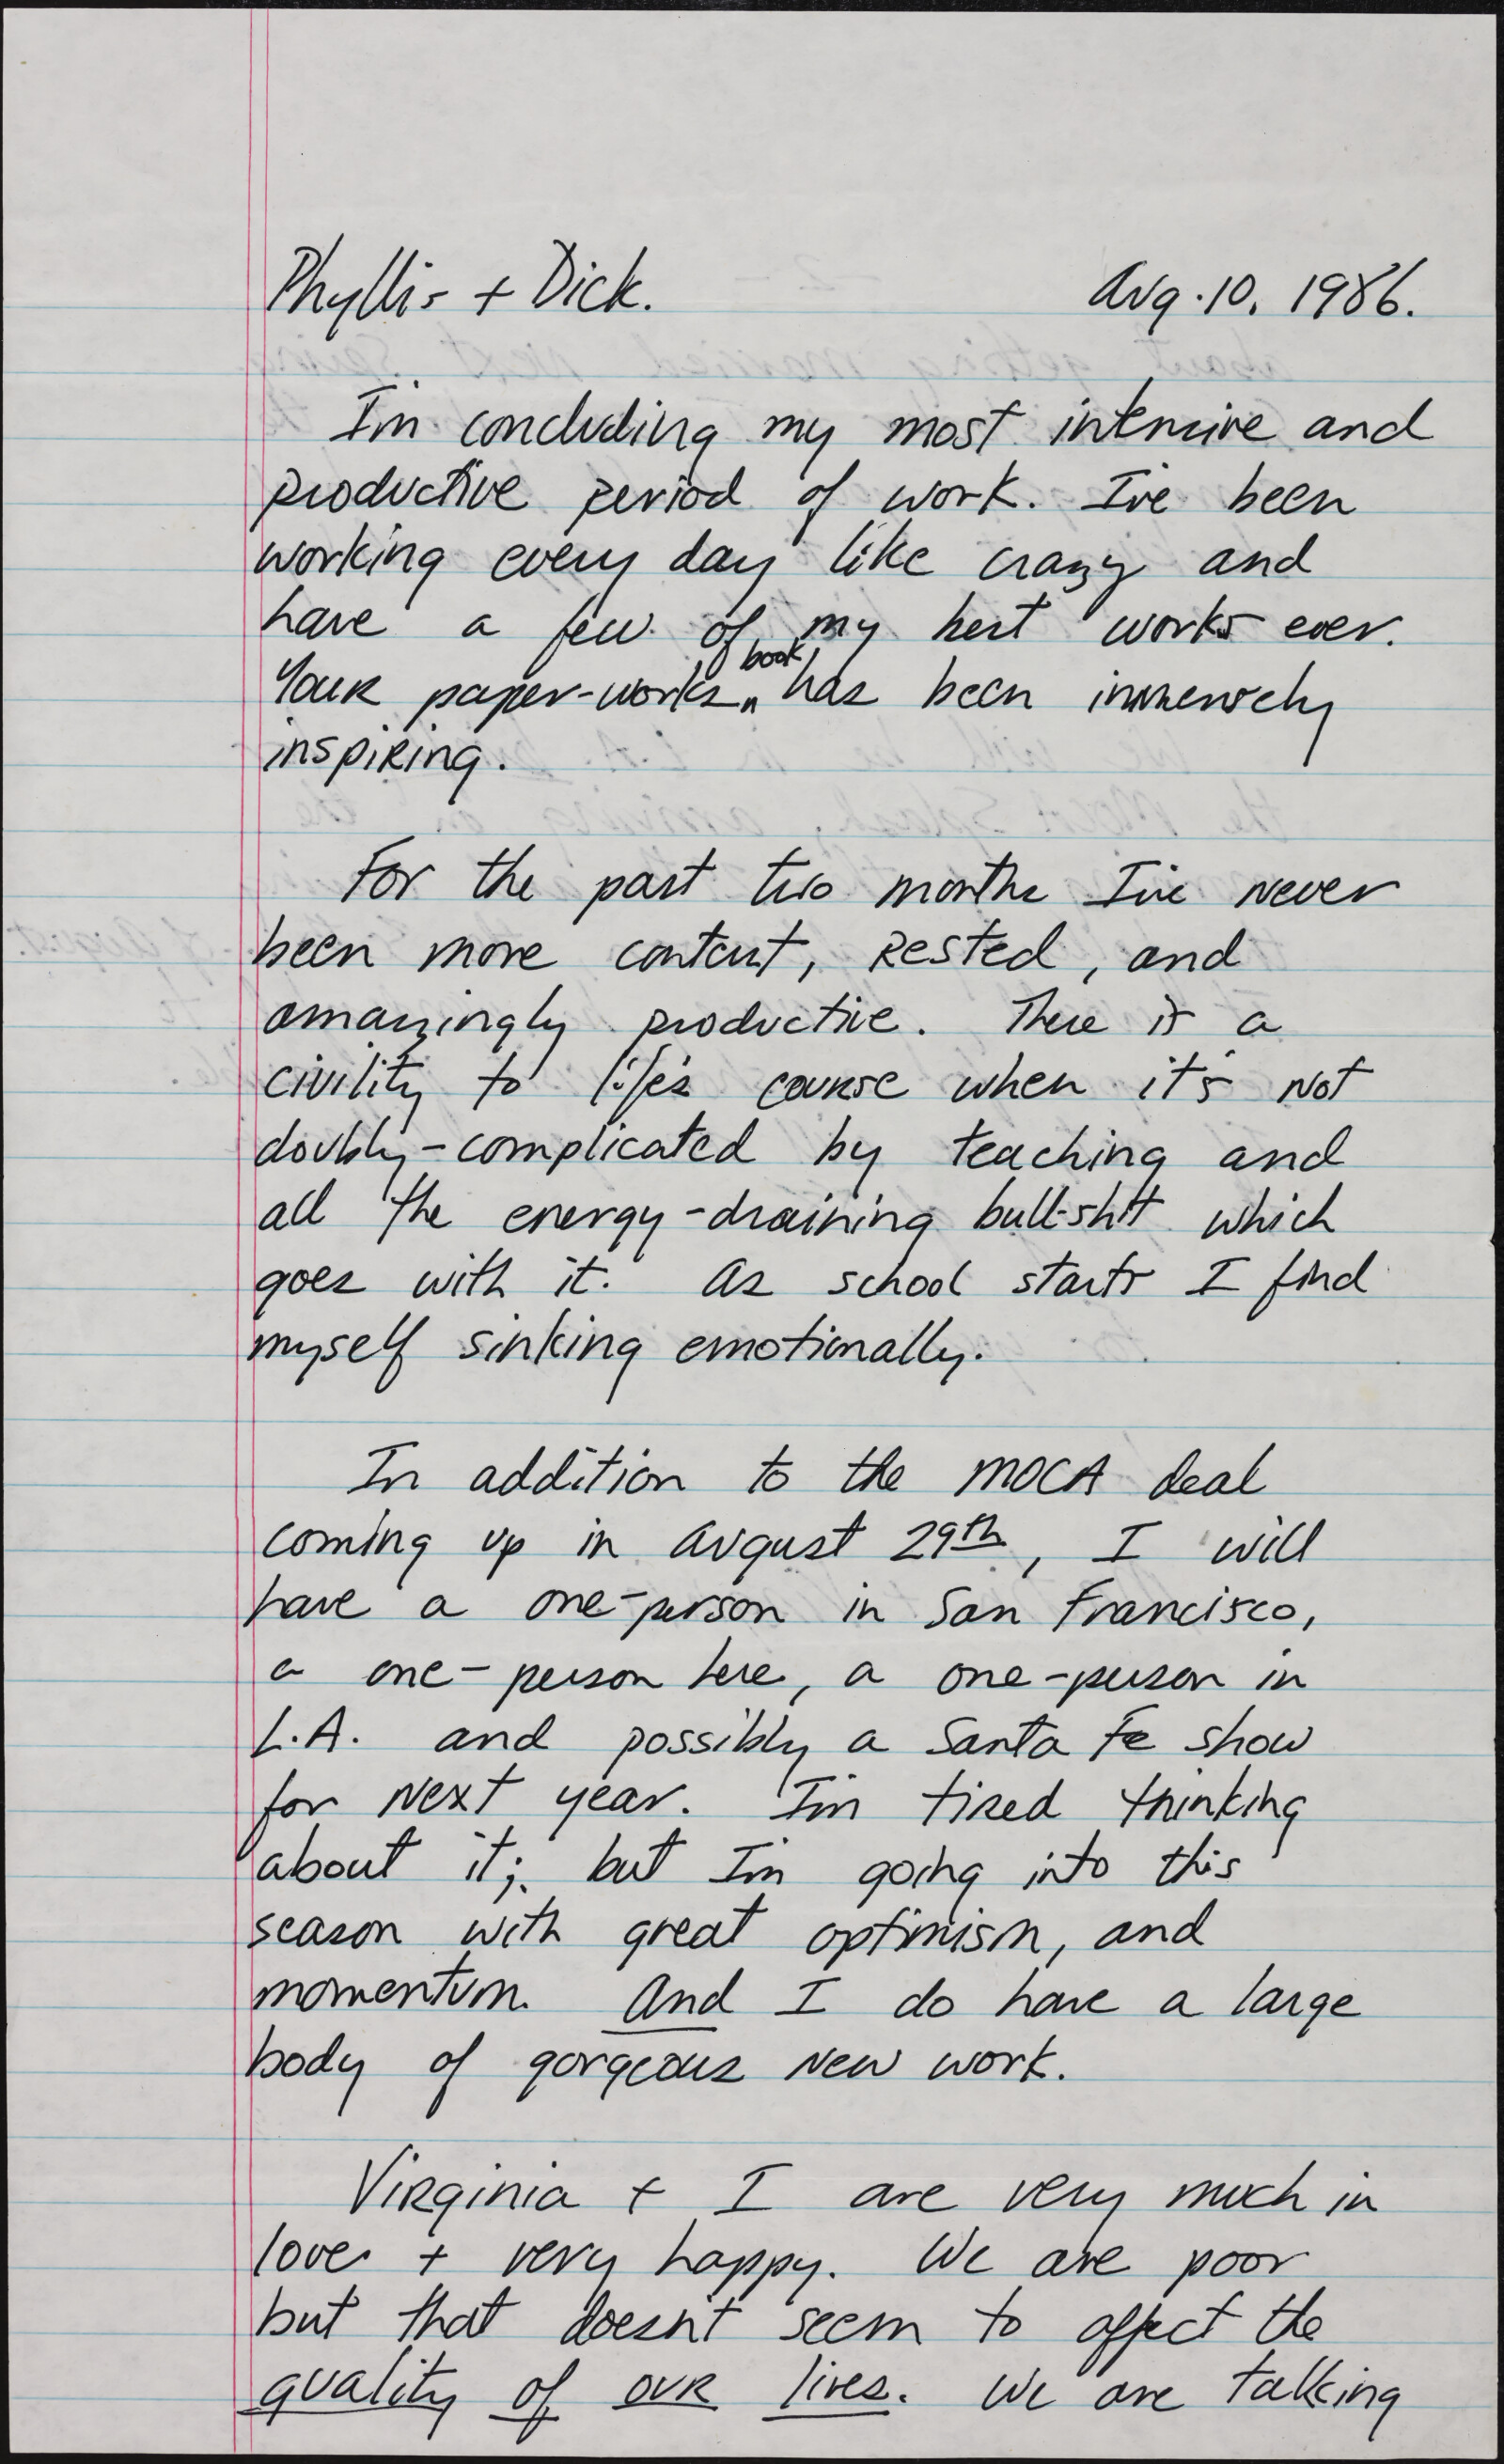 Phyllis + Dick. Aug. 10, 1986.
I'm concluding my most intensive and
productive period of work. I've been
working every day like crazy and
have a few of my best works ever.
Your paper-works book has been immensely
inspiring.
For the past two months I've never
been more content, rested, and
amazingly productive. There is a
civility to life's course when it's not
doubly-complicated by teaching and
all the energy-draining bull-shit which
goes with it. As school starts I find
myself sinking emotionally.
In addition to the MOCA deal
coming up in August 29th, I will
have a one-person in San Francisco,
a one-person here, a one-person in
L.A. and possibly a Santa Fe show
for next year. I'm tired thinking
about it; but I'm going into this
season with great optimism, and
momentum. And I do have a large
body of gorgeous new work.
Virginia + I are very much in
love + very happy. We are poor
but that doesn't seem to affect the
quality of our lives. We are talking